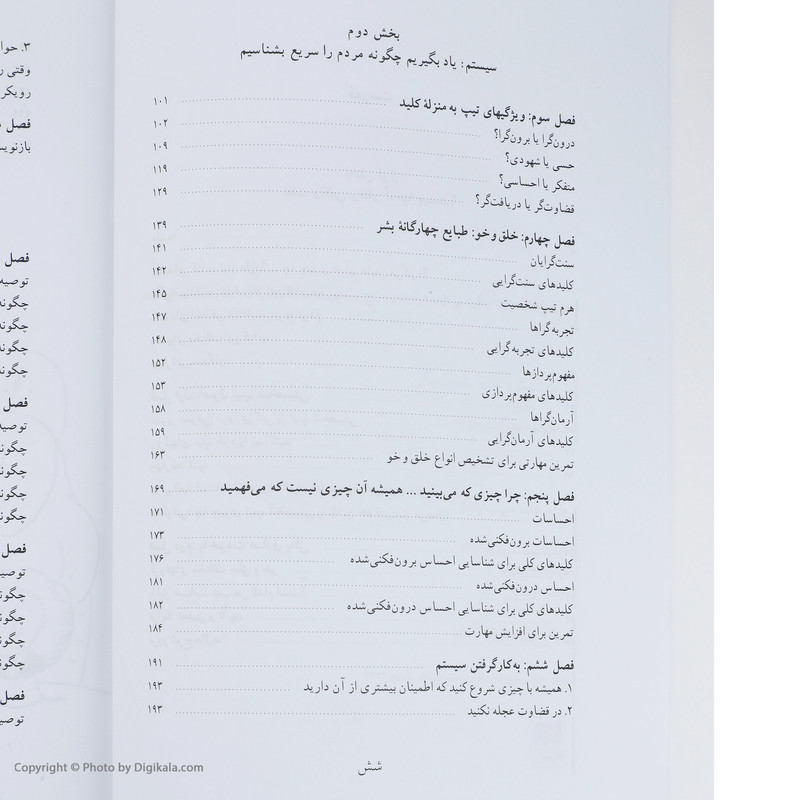 بخش دوم
سیستم: یاد بگیریم چگونه مردم را سریع بشناسیم
فصل سوم: ویژگیهای تیپ به منزلهٔ کلید ۱۰۱
درون‌گرا یا برون‌گرا؟ ۱۰۲
حسی یا شهودی؟ ۱۰۹
متفکر یا احساسی؟ ۱۱۹
قضاوت‌گر یا دریافت‌گر؟ ۱۲۹
فصل چهارم: خلق‌و‌خو: طبایع چهارگانهٔ بشر ۱۳۹
سنت‌گرایان ۱۴۱
کلیدهای سنت‌گرایی ۱۴۲
هرم تیپ شخصیت ۱۴۵
تجربه‌گراها ۱۴۷
کلیدهای تجربه‌گرایی ۱۴۸
مفهوم‌پردازها ۱۵۲
کلیدهای مفهوم‌پردازی ۱۵۳
آرمان‌گراها ۱۵۸
کلیدهای آرمان‌گرایی ۱۵۹
تمرین مهارتی برای تشخیص انواع خلق و خو ۱۶۳
فصل پنجم: چرا چیزی که می‌بینید ... همیشه آن چیزی نیست که می‌فهمید ۱۶۹
احساسات ۱۷۱
احساسات برون‌فکنی‌شده ۱۷۳
کلیدهای کلی برای شناسایی احساس برون‌فکنی‌شده ۱۷۶
احساس درون‌فکنی‌شده ۱۸۱
کلیدهای کلی برای شناسایی احساس درون‌فکنی‌شده ۱۸۲
تمرین برای افزایش مهارت ۱۸۴
فصل ششم: به‌کارگرفتن سیستم ۱۹۱
۱. همیشه با چیزی شروع کنید که اطمینان بیشتری از آن دارید ۱۹۳
۲. در قضاوت عجله نکنید ۱۹۳
شش
۳.
وقتی
فصل
فصل
فصل
فصل
فصل
Copyright © Photo by Digikala.com